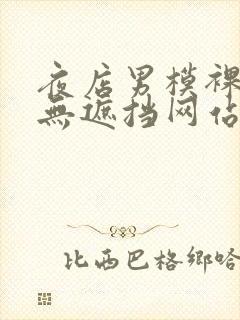 夜店男模裸
無遮挡网佔
比西巴格鄉哈